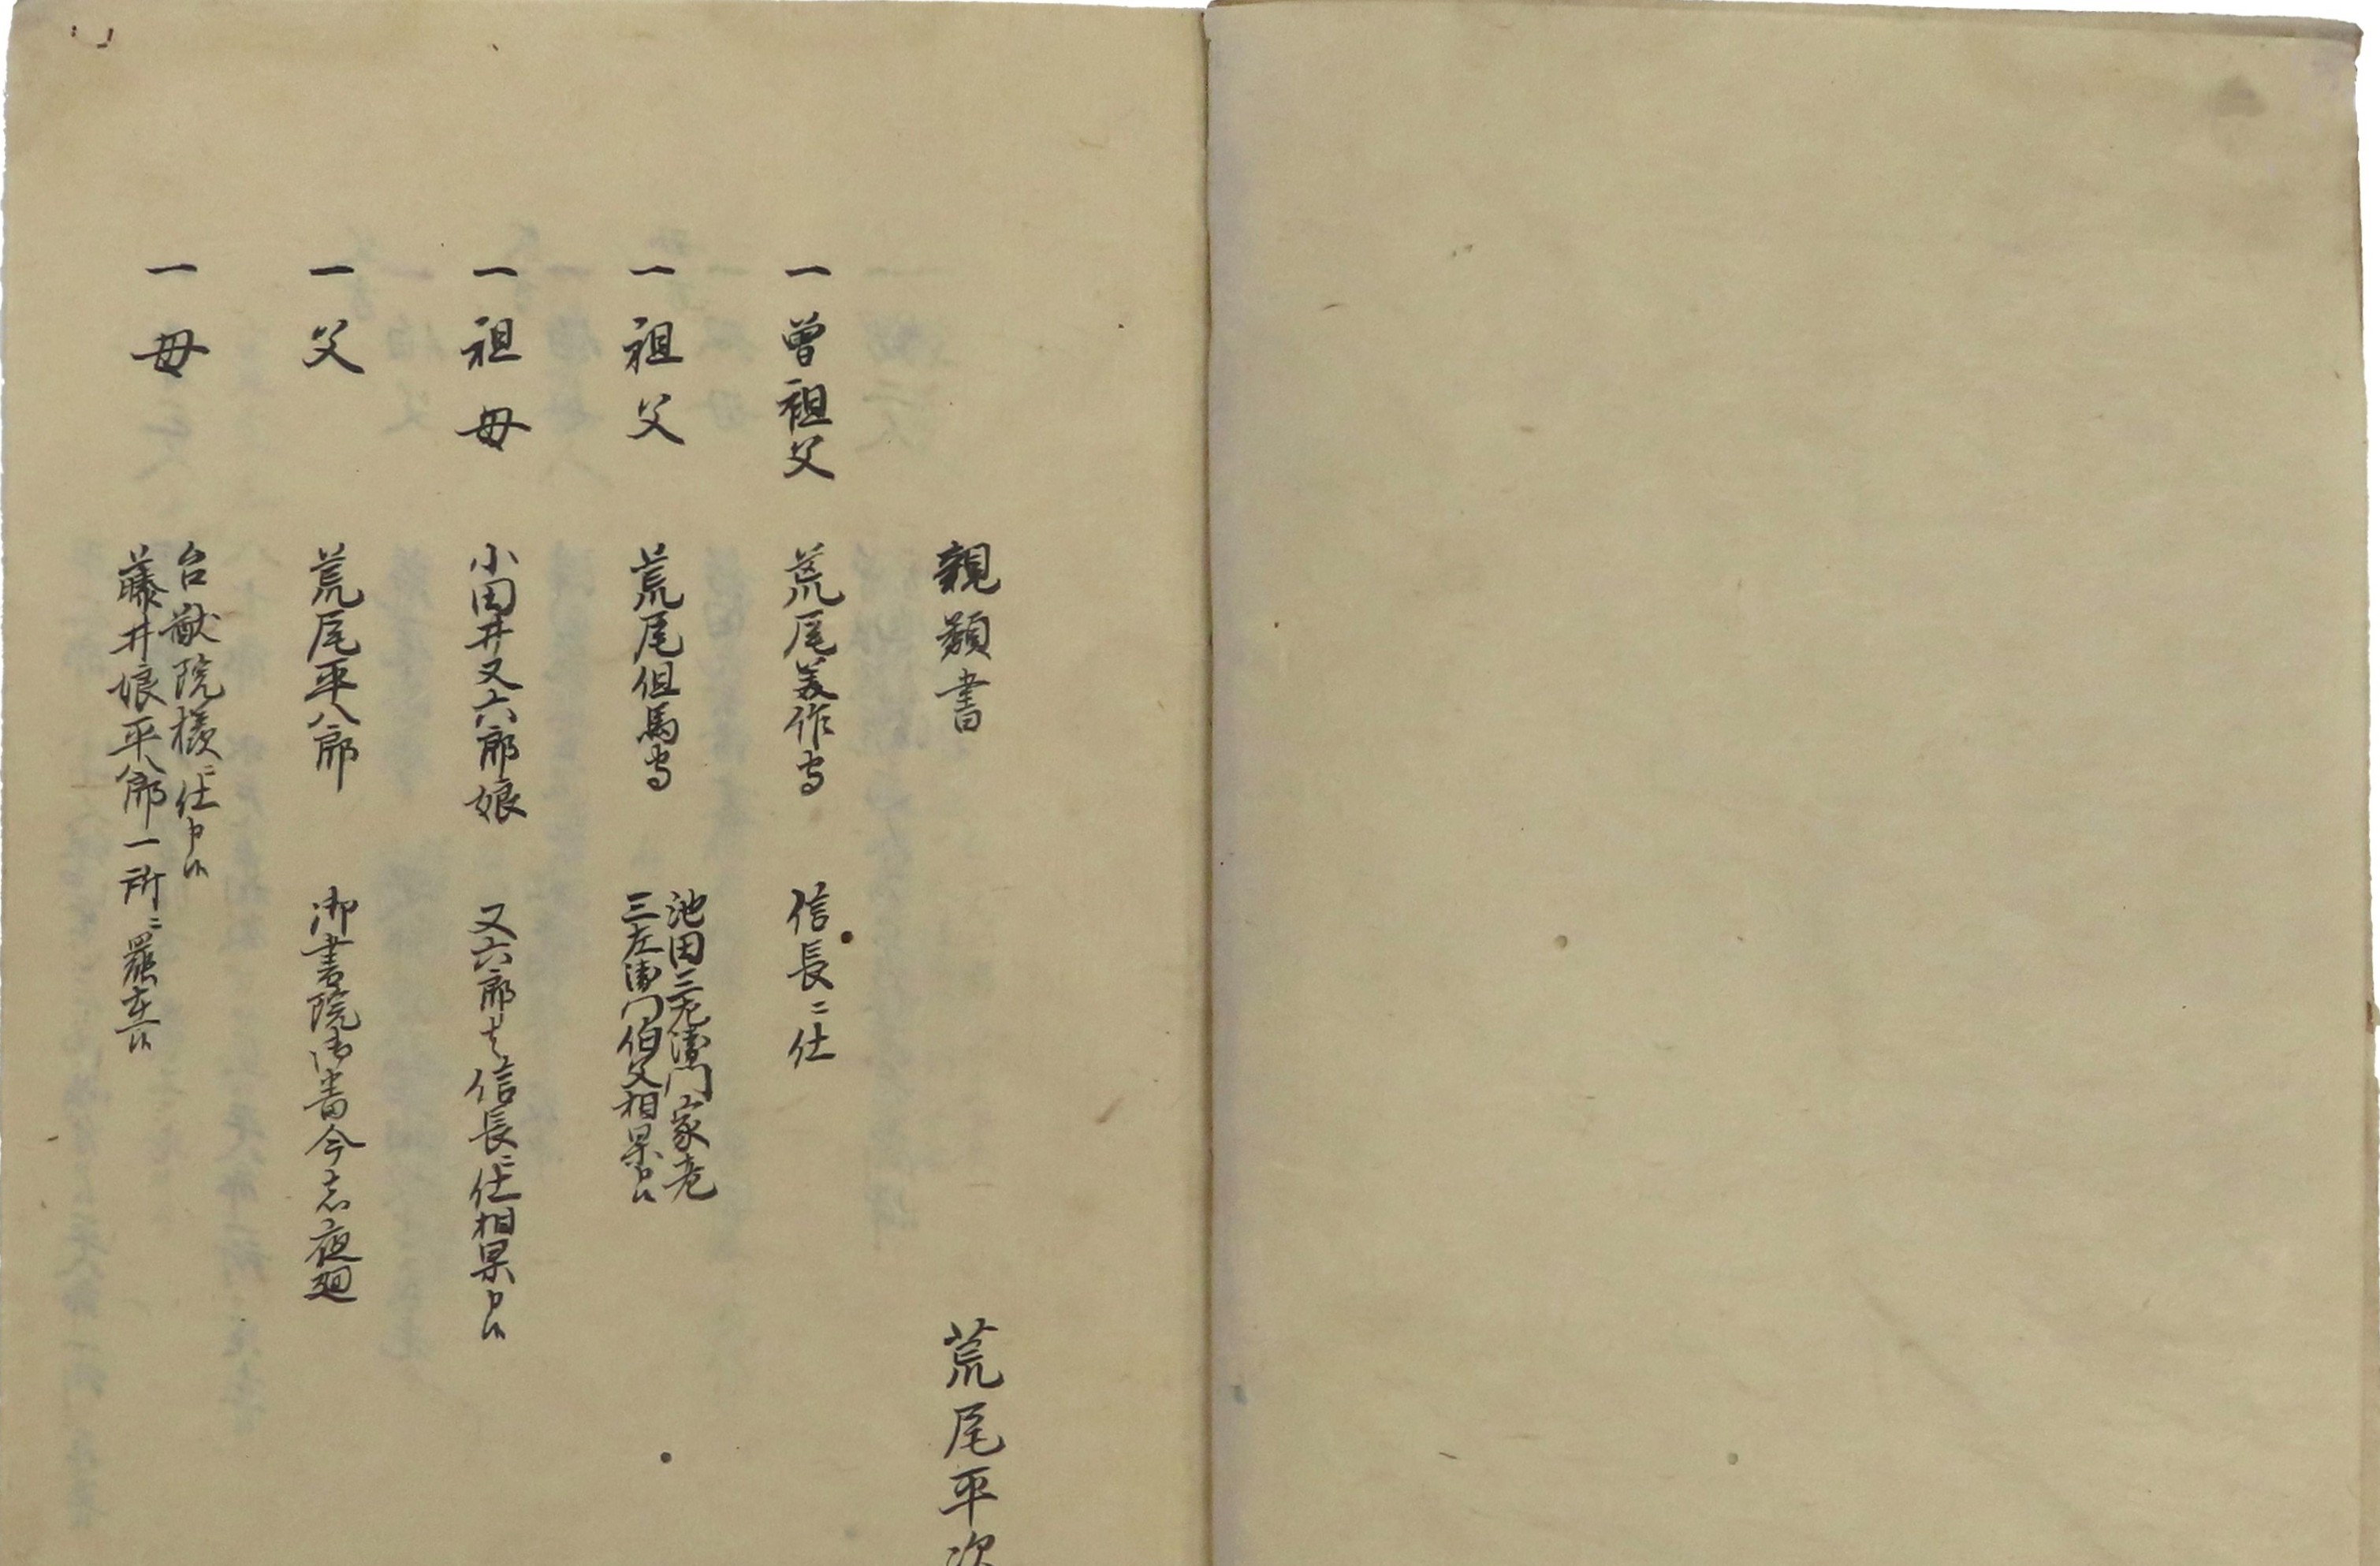 親類書
荒尾平次
一曽祖父 荒尾美作守 信長ニ仕
一祖父 荒尾但馬守 池田三左衛門家老
三左衛門伯父相果申候
一祖母 小田井又六郎娘 又六郎も信長ニ仕相果申候
一父 荒尾平八郎 御書院御番今志夜廻
一母 台猷院様ニ仕申候
藤井娘平八郎一所ニ罷在候